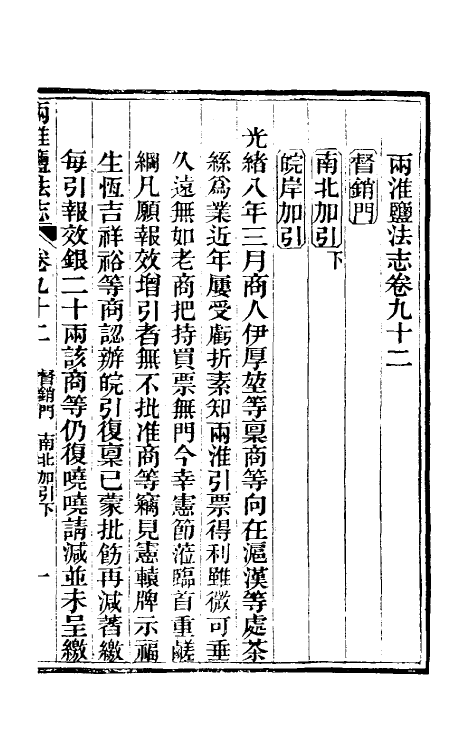 兩淮鹽法志卷九十二
督銷門
南北加引下
皖岸加引
光緒八年三月商人伊厚堃等稟商等向在滬漢等處茶
絲為業近年屢受虧折素知兩淮引票得利雖微可垂
久遠無如老商把持買票無門今幸憲節蒞臨首重鹺
綱凡願報效增引者無不批准商等竊見憲轅牌示福
生恆吉祥裕等商認辦皖引復稟已蒙批飭再減著繳
每引報效銀二十兩該商等仍復嘵嘵請減並未呈繳
兩淮鹽法志 卷九十二 督銷門 南北加引下 一